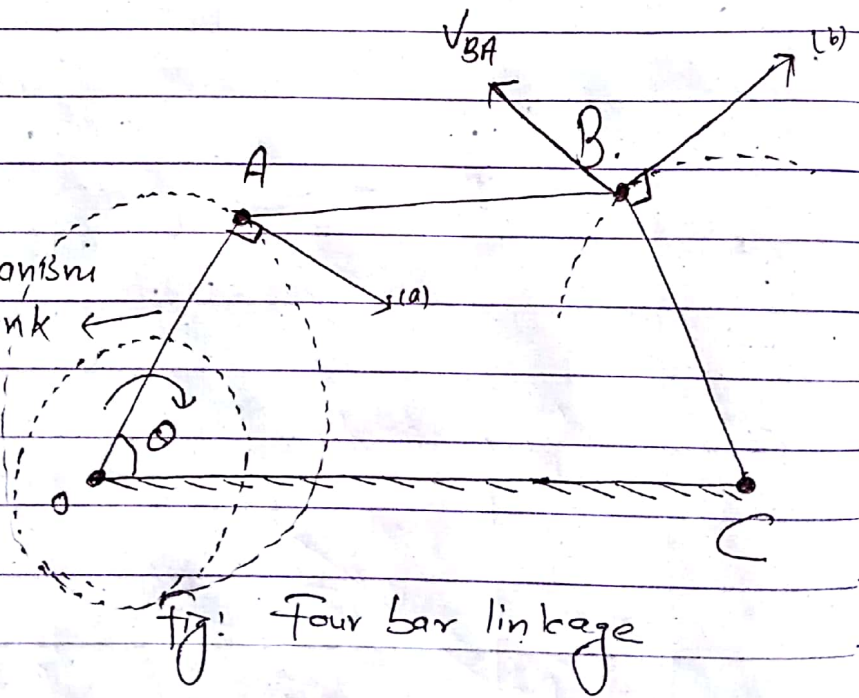 V_BA
(b)
B.
A
anism
nk ←
(a)
θ
O
C
Fig! Four bar linkage